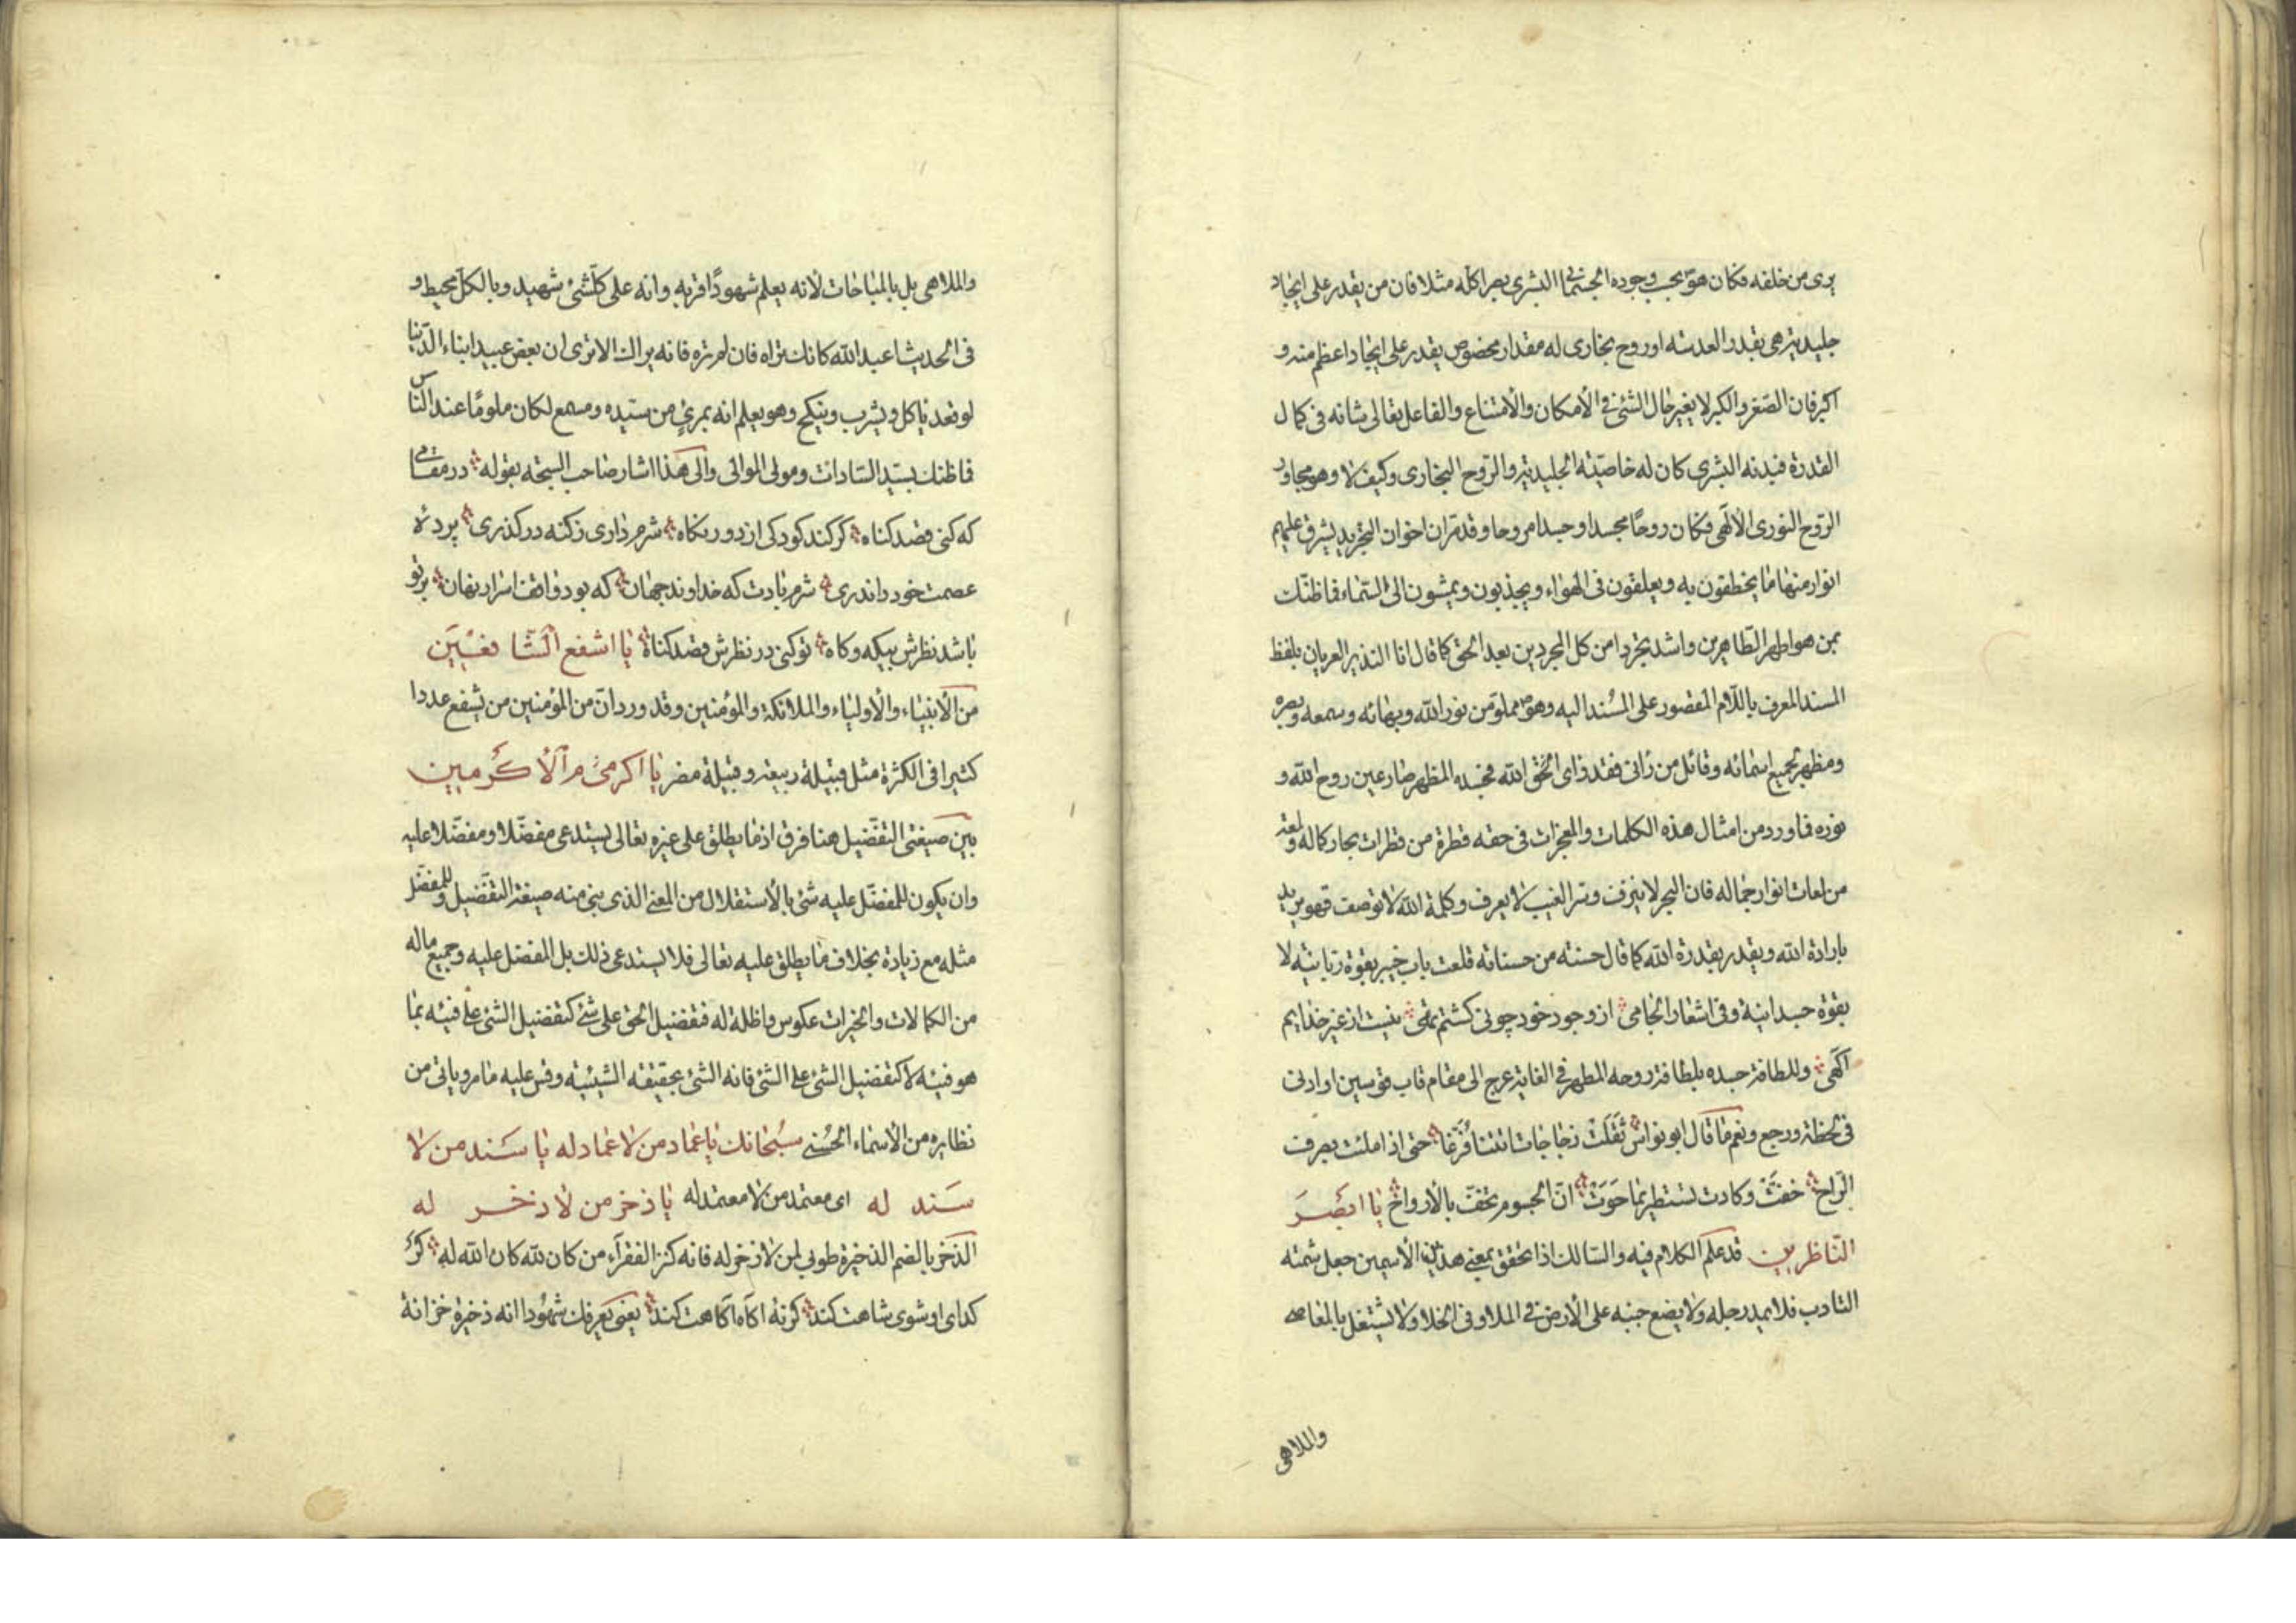 يرى من خلفه فكان هو بحسب وجوده الجسمانى البشرى بصرا كله مثلا فان من يقدر على ايجاد
جليدية هى بقدر العدسة او روح بخارى له مقدار مخصوص يقدر على ايجاد اعظم منه و
اكبر فان الصغر والكبر لا يغير حال الشئ فى الأمكان والأمتناع والفاعل تعالى شانه فى كمال
القدرة فبدنه البشرى كان له خاصّيّة الجليدية والرّوح البخارى وكيف لا وهو مجاور
الرّوح النورى الألهى فكان روحًا مجسدا وجسدا مروحا وقد مرّ ان اخوان التجريد يشرق عليهم
انوار منها ما يخطفون به ويعلقون فى الهواء ويجذبون ويمشون الى السّماء فما ظنّك
بمن هو اطهر الطّاهرين واشد تجردا من كل المجردين بعد الحق كما قال انا النذير العريان بلفظ
المسند المعرف باللّام المقصور على المسُند اليه وهو ص مملوّ من نور الله وبهائه وسمعه وبصره
ومظهر لجميع اسمائه وقائل من رأنى فقد رأى الحقّ الله فجسده المظهر صار عين روح الله و
نوره فما ورد من امثال هذه الكلمات والمعجزات فى حقه قطرة من قطرات بحار كماله ولمعة
من لمعات انوار جماله فان البحر لا ينزف وسر الغيب لا يعرف وكلمة الله لا توصف فهو يريد
بارادة الله ويقدر بقدرة الله كما قال حسنة من حسناته قلعت باب خيبر بقوة ربّانيّة لا
بقوة جسدانية وفى اشعار الجامى از وجود خود چونى كشتم تهى نيست از غير خدايم
آكهى وللطافة جسده بلطافة روحه المطهر فى الغاية عرج الى مقام قاب قوسين او ادنى
فى لحظة ورجع ونعم ما قال ابو نواس ثقلَتْ زجاجات اتتنا فُرّغا حتى اذا ملئت بصرف
الرّاح خفتّ وكادت تستطير بما حَوَتْ انّ الجسوم تخفّ بالأرواح يا ابْصَرَ
النّاظرين قد علم الكلام فيه والسّالك اذا تحقق بمعنى هذين الأسمين جعل شمته
التادب فلا يمد رجله ولا يضع جنبه على الأرض فى الملا وفى الخلا ولا يشتغل بالمعاصى
والملاهى
والملاهى بل بالمباحات لأنه يعلم شهودًا قربه وانه على كلّشئ شهيد وبالكلّ محيط و
فى الحديث اعبد الله كانك تراه فان لم تره فانه يراك الا ترى ان بعض عبيد ابناء الدّنيا
لو قعد ياكل ويشرب وينكح وهو يعلم انه بمرئ من سيّده ومسمع لكان ملومًا عند الناس
فما ظنك بسيّد السّادات ومولى الموالى والى هذا اشار صاحب السبحة بقوله در مقامى
كه كنى قصد كناه كر كند كودكى از دور نكاه شرم دارى زكنه در كذرى پردهٔ
عصمت خود را ندرى شرم بادت كه خداوند جهان كه بود واقف اسرار نهان بر تو
باشد نظرش بيكه وكاه تو كنى در نظرش قصد كناه يا اشفع الشّافعين
من الأنبياء والأولياء والملائكة والمؤمنين وقد ورد انّ من المؤمنين من يشفع عددا
كثيرا فى الكثرة مثل قبيلة ربيعة وقبيلة مضر يا اكرم من الأكرمين
بين صيغتى التفّضيل هنا فرق اذ ما يطلق على غيره تعالى يستدعى مفضّلا ومفضّلا عليه
وان يكون للمفضّل عليه شئ بالأستقلال من المعنى الذى بنى منه صيغة التفّضيل وللمفضّل
مثله مع زيادة بخلاف ما يطلق عليه تعالى فلا يستدعى ذلك بل المفضل عليه وجميع ماله
من الكمالات والخيرات عكوس واظلة له فتفضيل الحق على شئ كتفضيل الشئ على فيئه بما
هو فيئه لا كتفضيل الشئ على الشئ فانه الشئ بحقيقة الشيئية وقس عليه ما مر وياتى من
نظايره من الأسماء الحُسنى سبُحانك يا عماد من لا عماد له يا سَند من لا
سَند له اى معتمد من لا معتمد له يا ذخر من لا ذخر له
الذّخر بالضم الذخيرة طوبى لمن لا ذخر له فانه كنز الفقرآء من كان لله كان الله له كر
كداى او شوى شاهت كند كر نهٔ آكاه آكاهت كند يعنى يعرفك شهُودا انه ذخيرة خزانة